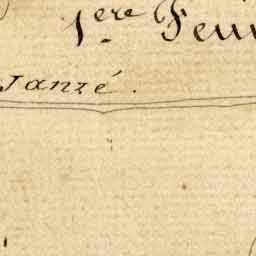 1ère Feui
Janzé.